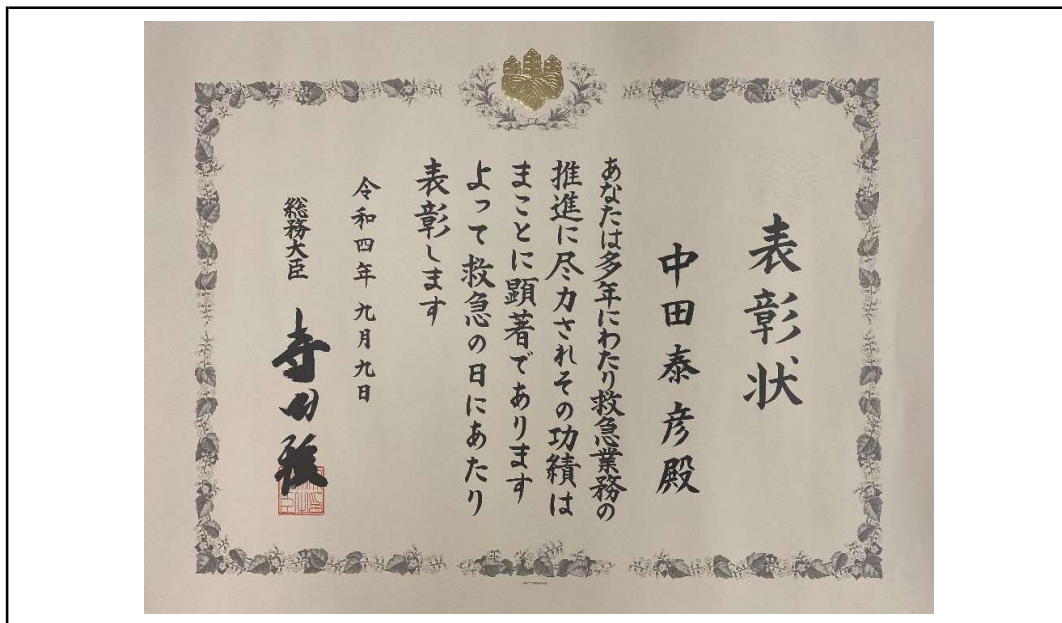 表彰状
中田泰彦殿
あなたは多年にわたり救急業務の
推進に尽力されその功績は
まことに顕著であります
よって救急の日にあたり
表彰します
令和四年九月九日
総務大臣 寺田稔